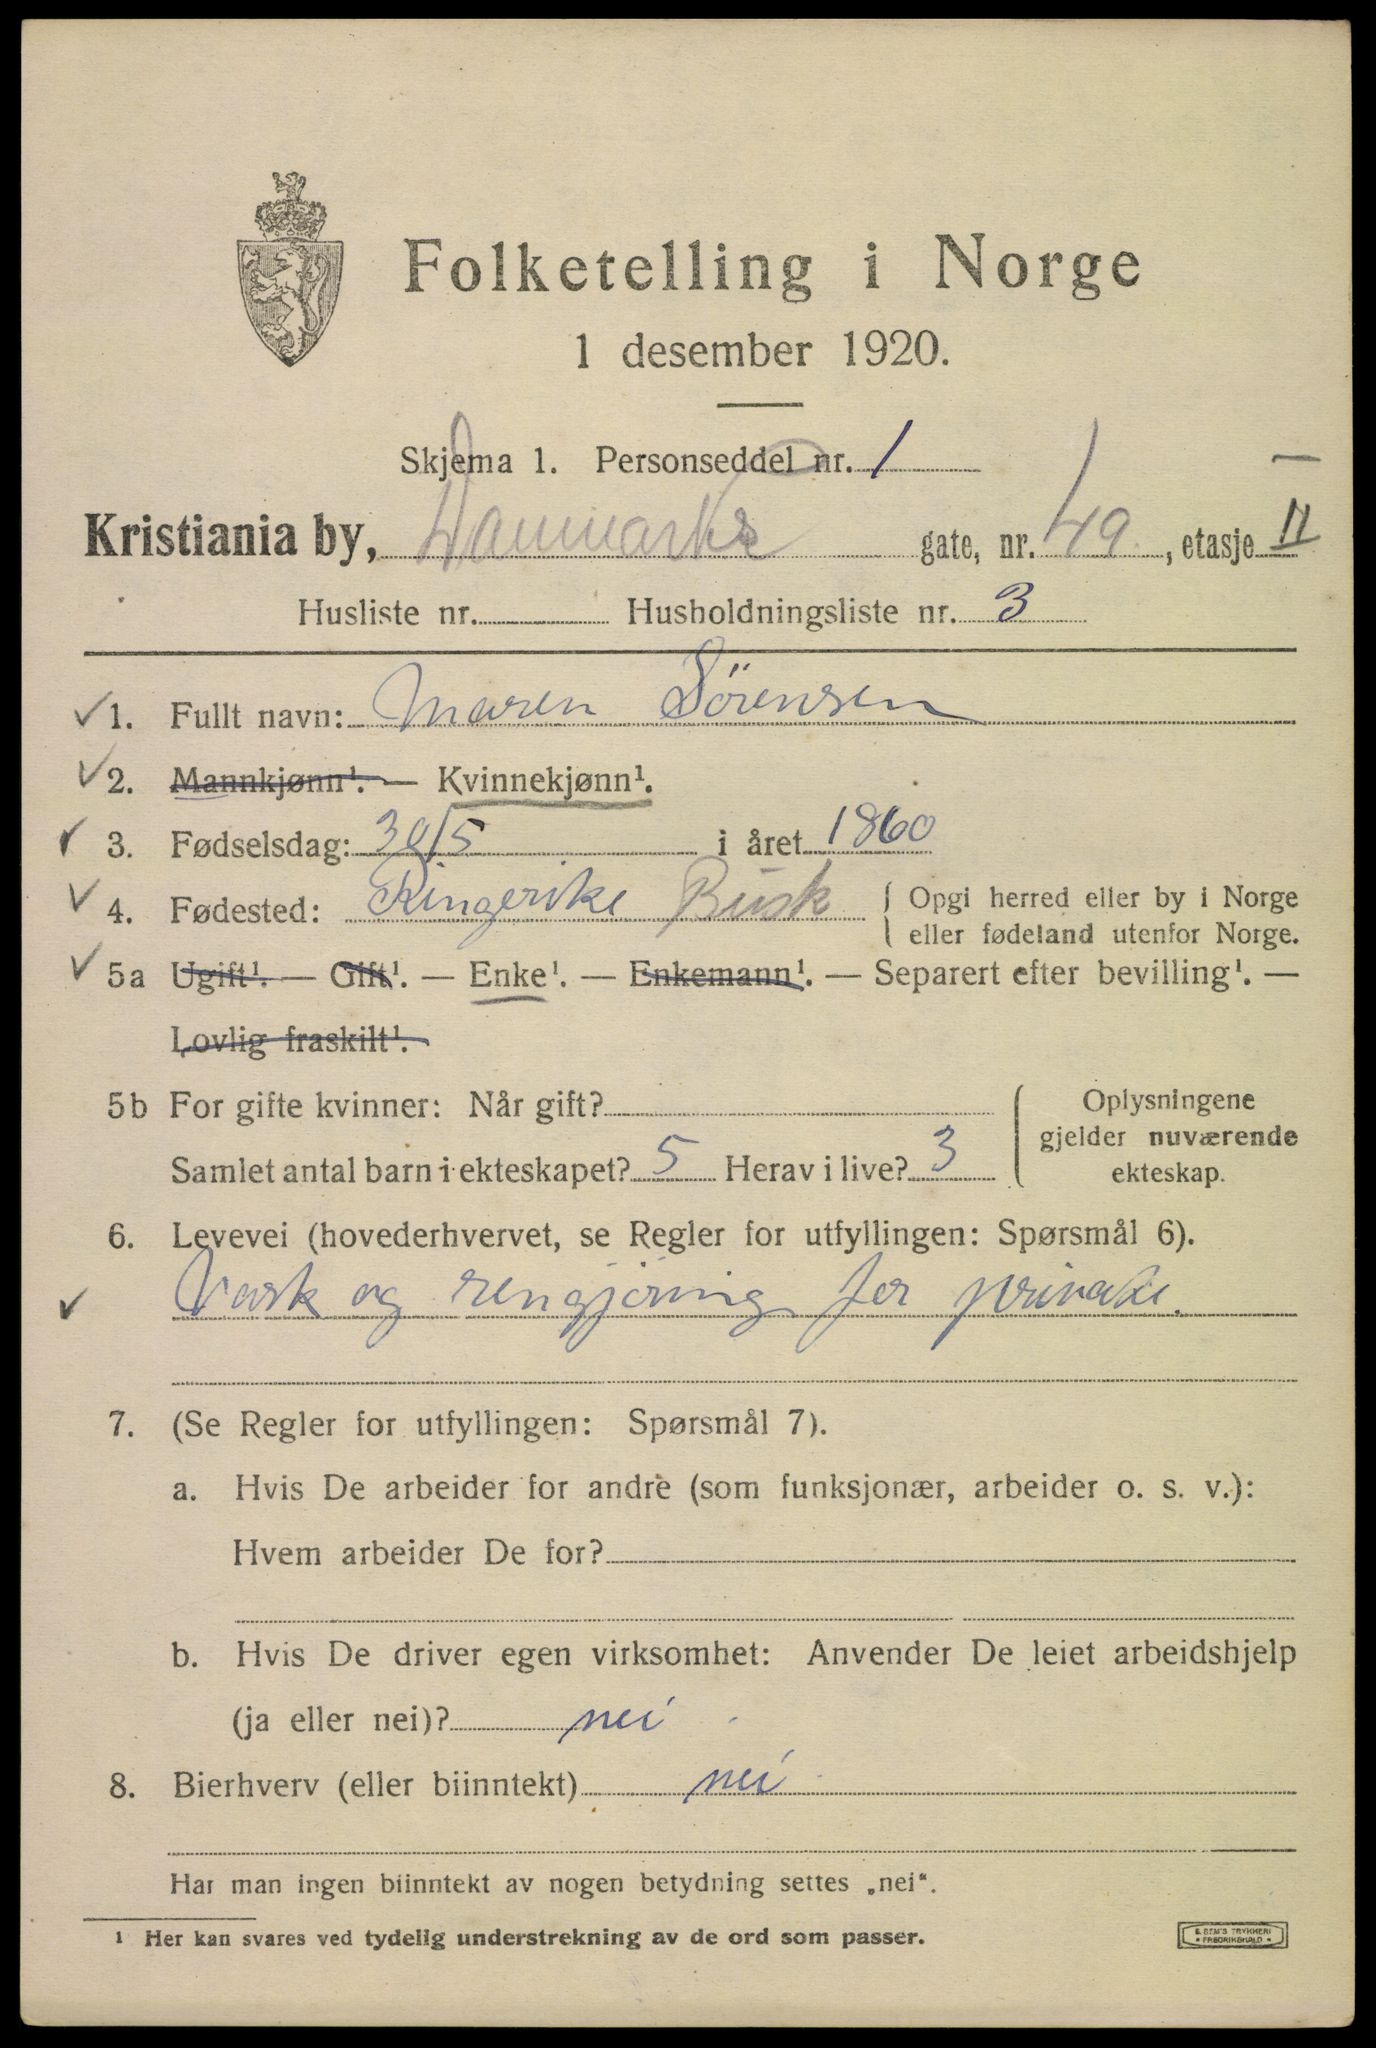 Folketelling i Norge
1 desember 1920.
Skjema 1. Personseddel nr. 1
Kristiania by, Danmarks gate, nr. 49, etasje II
Husliste nr. Husholdningsliste nr. 3
1. Fullt navn: Maren Sörensen
2. Mannkjønn¹. — Kvinnekjønn¹.
3. Fødselsdag: 30/5 i året 1860
4. Fødested: Ringerike Busk { Opgi herred eller by i Norge
eller fødeland utenfor Norge.
5a Ugift¹. — Gift¹. — Enke¹. — Enkemann¹. — Separert efter bevilling¹. —
Lovlig fraskilt¹.
5b For gifte kvinner: Når gift? Oplysningene
gjelder nuværende
Samlet antal barn i ekteskapet? 5 Herav i live? 3 ekteskap.
6. Levevei (hovederhvervet, se Regler for utfyllingen: Spørsmål 6).
Vask og rengjöring for private.
7. (Se Regler for utfyllingen: Spørsmål 7).
a. Hvis De arbeider for andre (som funksjonær, arbeider o. s. v.):
Hvem arbeider De for?
b. Hvis De driver egen virksomhet: Anvender De leiet arbeidshjelp
(ja eller nei)? nei
8. Bierhverv (eller biinntekt) nei
Har man ingen biinntekt av nogen betydning settes „nei“.
¹ Her kan svares ved tydelig understrekning av de ord som passer.
E. SEM'S TRYKKERI
FREDRIKSHALD